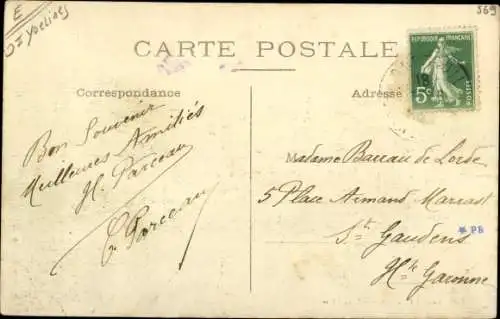 E
Yvelines
569
CARTE POSTALE
REPUBLIQUE FRANÇAISE
5c
POSTES
Correspondance
Adresse
Bon Souvenir
Meilleures Amitiés
H. Parceau
Parceau
Madame Barrau de Lorde
5 Place Armand Marrast
St. Gaudens
Hte Garonne
PB